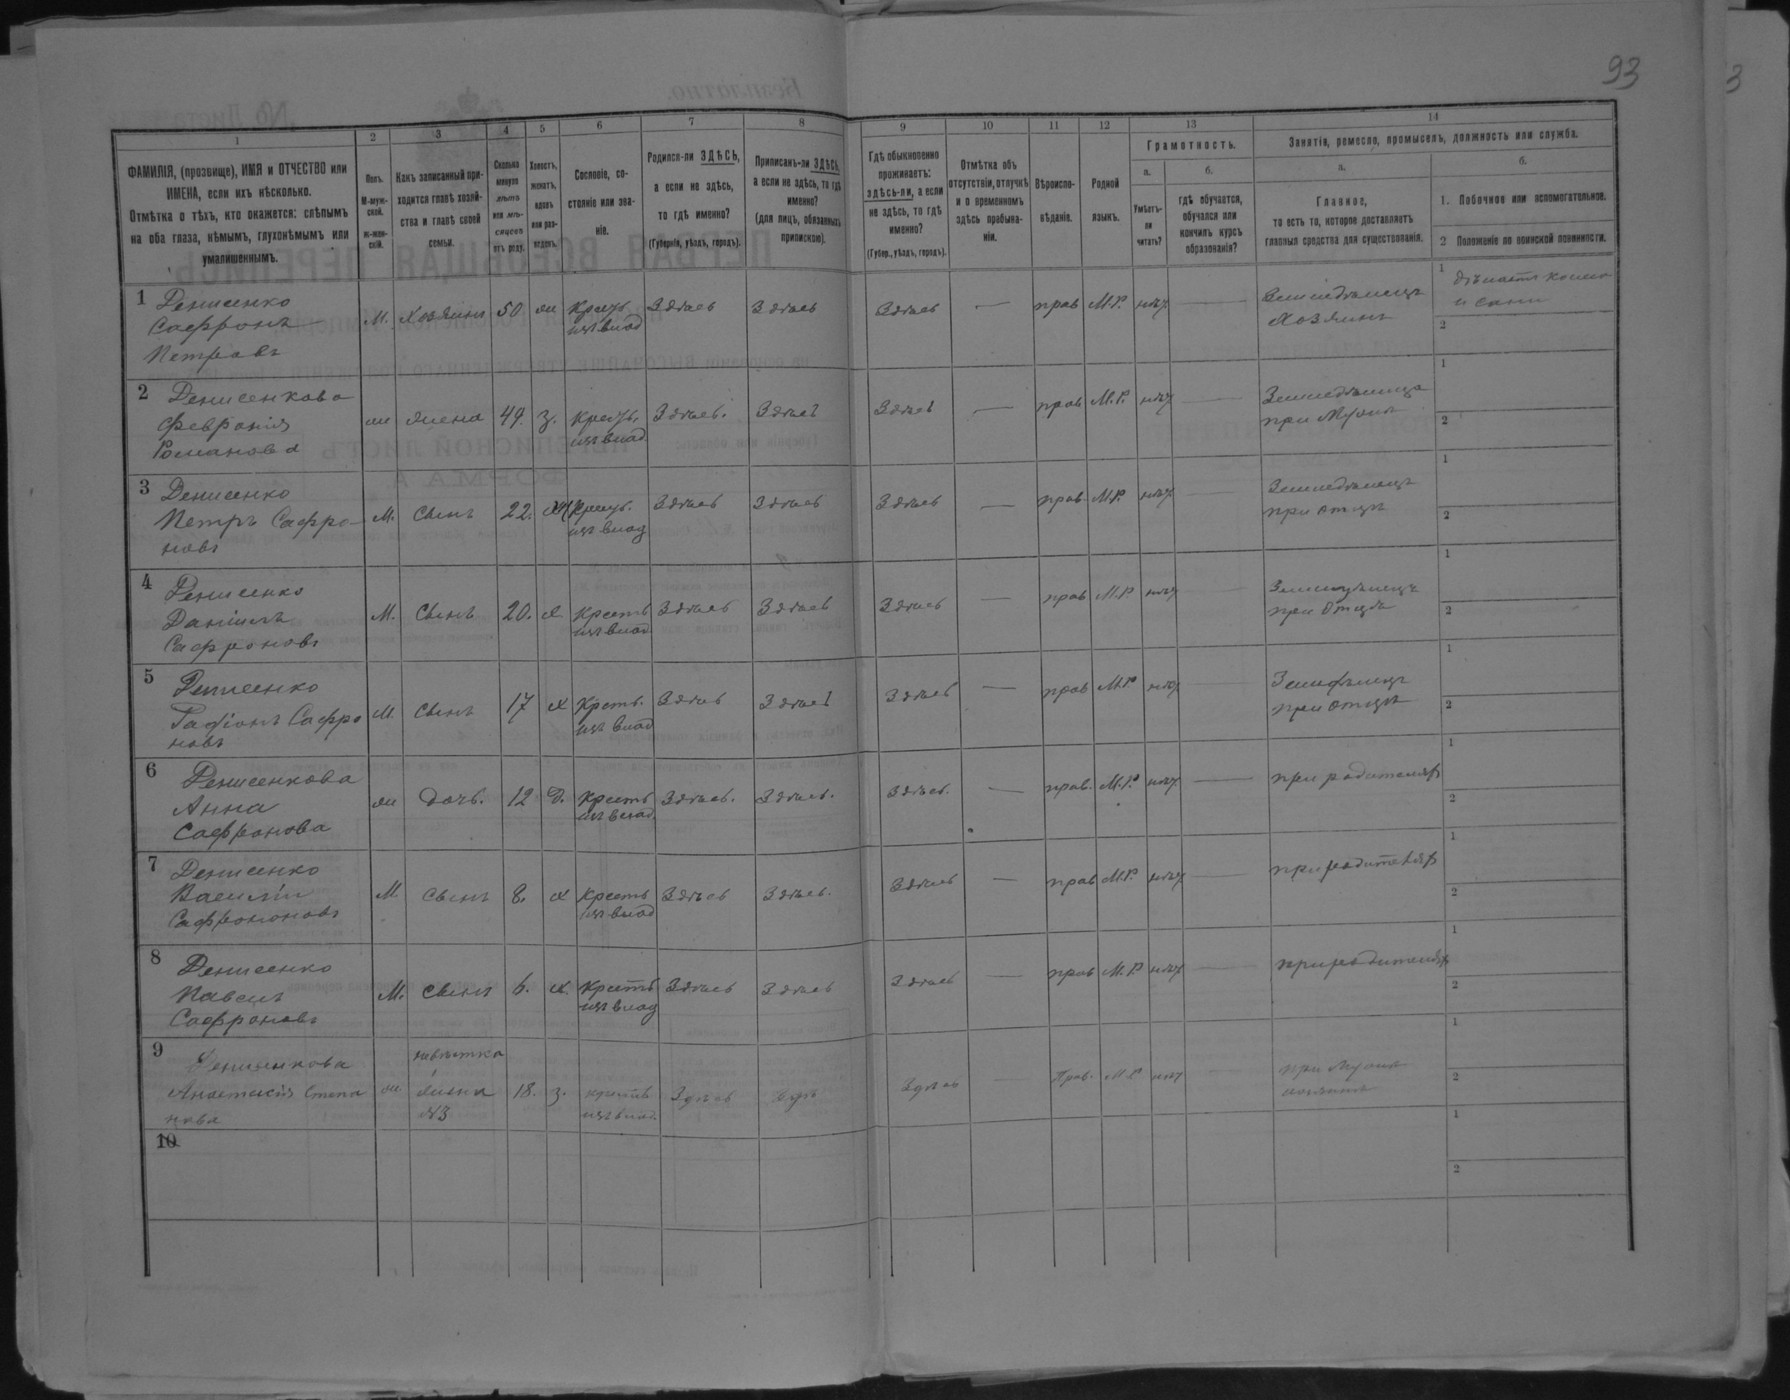 93
1 2 3 4 5 6 7 8 9 10 11 12 13 14
ФАМИЛІЯ, (прозвище), ИМЯ и ОТЧЕСТВО или
ИМЕНА, если ихъ нѣсколько.
Отмѣтка о тѣхъ, кто окажется: слѣпымъ
на оба глаза, нѣмымъ, глухонѣмымъ или
умалишеннымъ.
Полъ.
М-муж-
ской.
ж-жен-
скій.
Какъ записанный при-
ходится главѣ хозяй-
ства и главѣ своей
семьи.
Сколько
минуло
лѣтъ
или мѣ-
сяцевъ
отъ роду.
Холостъ,
женатъ,
вдовъ
или раз-
веденъ.
Сословіе, со-
стояніе или зва-
ніе.
Родился-ли ЗДѢСЬ,
а если не здѣсь,
то гдѣ именно?
(Губернія, уѣздъ, городъ).
Приписанъ-ли ЗДѢСЬ,
а если не здѣсь, то гдѣ
именно?
(для лицъ, обязанныхъ
припискою).
Гдѣ обыкновенно
проживаетъ:
здѣсь-ли, а если
не здѣсь, то гдѣ
именно?
(Губер., уѣздъ, городъ).
Отмѣтка объ
отсутствіи, отлучкѣ
и о временномъ
здѣсь пребыва-
ніи.
Вѣроиспо-
вѣданіе.
Родной
языкъ.
Грамотность.
а.
Умѣетъ-
ли
читать?
б.
гдѣ обучается,
обучался или
кончилъ курсъ
образованія?
Занятія, ремесло, промыселъ, должность или служба.
а.
Главное,
то есть то, которое доставляетъ
главныя средства для существованія.
б.
1. Побочное или вспомогательное.
2 Положеніе по воинской повинности.
1 Денисенко
Сафронъ
Петровъ
М. Хозяинъ 50 ж Крест.
изъ влад
Здѣсь Здѣсь Здѣсь — прав М.Р. нѣт —
Земледѣлецъ
Хозяинъ
1
и сани
2
2 Денисенкова
Феврония
Романова
ж жена 49. з. Крест.
изъ влад
Здѣсь. Здѣсь Здѣсь — прав М.Р. нѣт —
при Мужѣ
1
2
3 Денисенко
Петръ Сафро-
новъ
М. Сынъ 22. Крест.
изъ влад
Здѣсь Здѣсь Здѣсь — прав М.Р нѣт
Земледѣлецъ
при отцѣ
1
2
4 Денисенко
Даніилъ
Сафроновъ
М. Сынъ 20. х Крестъ
изъ влад
Здѣсь Здѣсь Здѣсь — прав М.Р нѣт —
Земледѣлецъ
при Отцѣ
1
2
5 Денисенко
Сафро
новъ
М. Сынъ 17 х Крстъ.
изъ влад
Здѣсь Здѣсь Здѣсь — прав М.Р. нѣт —
при отцѣ
1
2
6 Денисенкова
Анна
Сафронова
ж дочь. 12 д. Крестъ
изъ влад
Здѣсь. Здѣсь. Здѣсь. — прав. М.Р. нѣт —
при родителях
1
2
7 Денисенко
Василій
М Сынъ 8. х Крестъ
изъ влад
Здѣсь Здѣсь. Здѣсь — прав М.Р. нѣт —
при родителях
1
2
8 Денисенко
Павелъ
Сафроновъ
М. Сынъ 6. х. Крестъ
изъ влад
Здѣсь Здѣсь Здѣсь — прав М.Р нѣт —
при родителях
1
2
9 Денисенкова
Анастасія Степа
нова
ж невѣстка
жена
№3
18. з. крестъ
изъ влад.
Здѣсь Здѣсь — Прав. М Р нѣт —
при Мужѣ
1
2
10
1
2